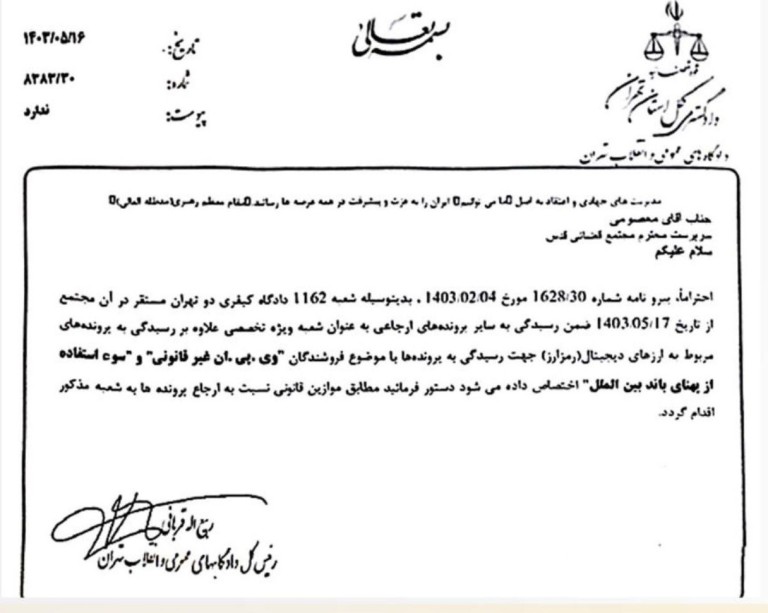 بسمه تعالی
قوه قضاییه
دادگستری کل استان تهران
دادگاه های عمومی و انقلاب تهران
تاریخ: ۱۴۰۳/۰۵/۱۶
شماره: ۸۳۸۳/۳۰
پیوست: ندارد
مدیریت های جهادی و اعتقاد به اصل ما می توانیم ایران را به عزت و پیشرفت در همه عرصه ها رساند. مقام معظم رهبری(مدظله العالی)
جناب آقای معصومی
سرپرست محترم مجتمع قضائی قدس
سلام علیکم
احتراماً، پیرو نامه شماره 1628/30 مورخ 1403/02/04 ، بدینوسیله شعبه 1162 دادگاه کیفری دو تهران مستقر در آن مجتمع
از تاریخ 1403/05/17 ضمن رسیدگی به سایر پرونده‌های ارجاعی به عنوان شعبه ویژه تخصصی علاوه بر رسیدگی به پرونده‌های
مربوط به ارزهای دیجیتال(رمزارز) جهت رسیدگی به پرونده‌ها با موضوع فروشندگان "وی.پی.ان غیر قانونی" و "سوء استفاده
از پهنای باند بین الملل" اختصاص داده می شود دستور فرمائید مطابق موازین قانونی نسبت به ارجاع پرونده ها به شعبه مذکور
اقدام گردد.
ربیع اله قربانی
رئیس کل دادگاههای عمومی و انقلاب تهران